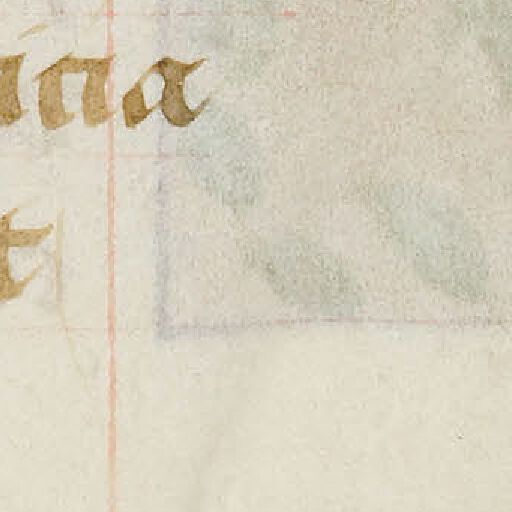 ina
t